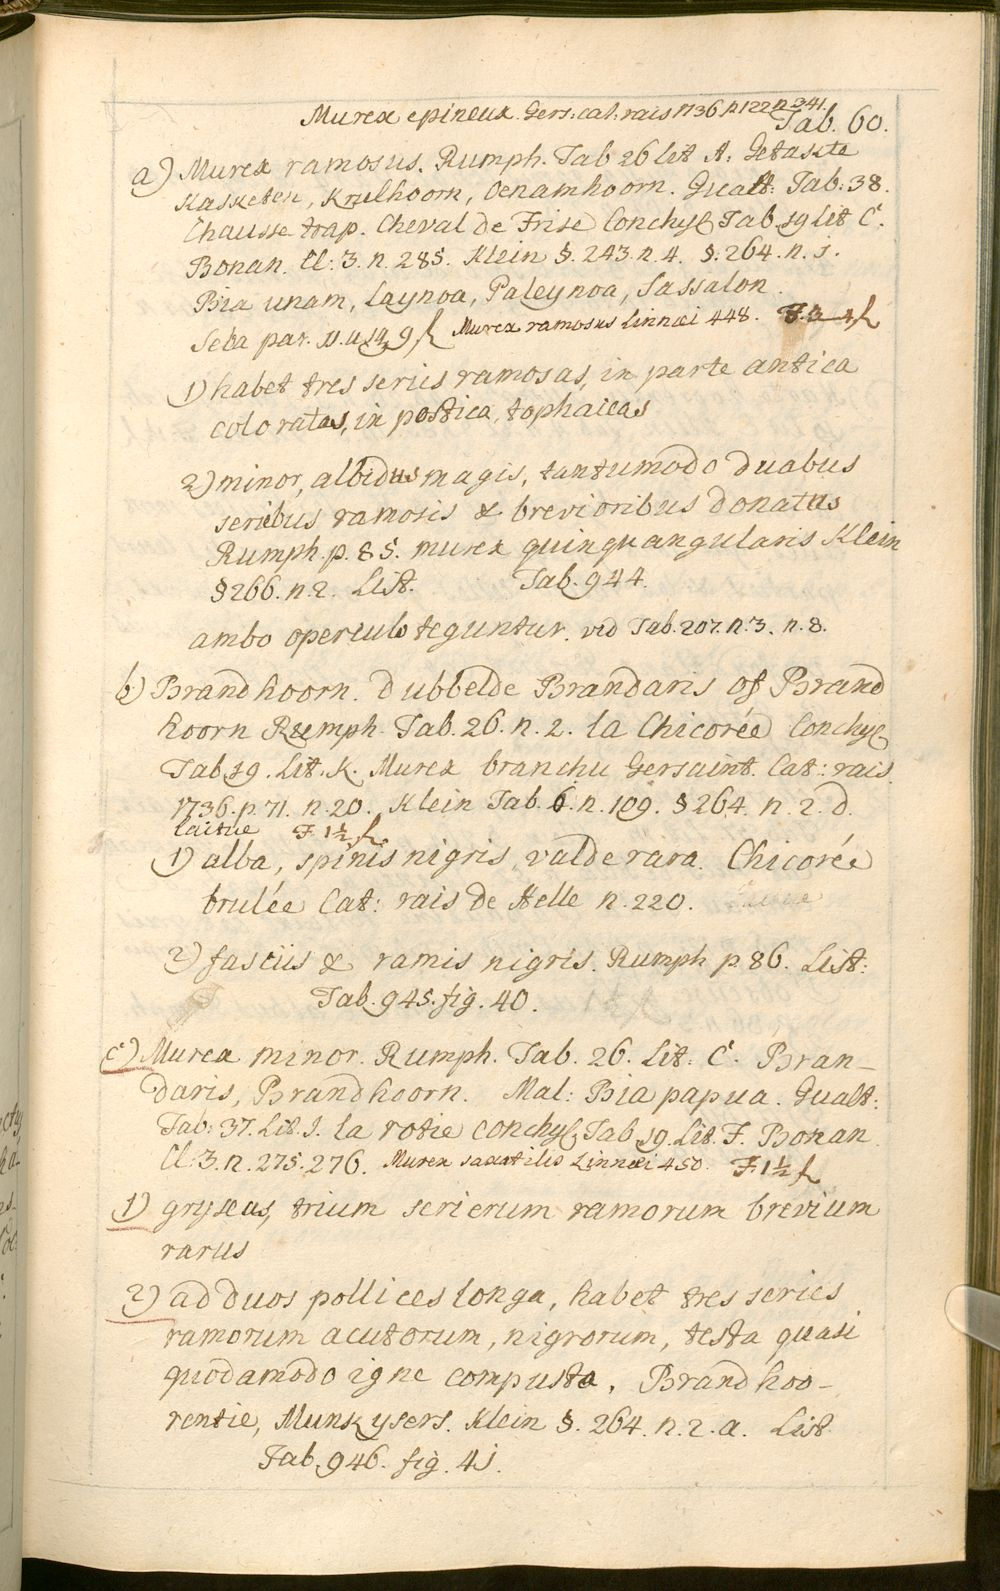 Murex epineux. Gers: cat: rais 1736 p 122 n 341.
Tab. 60.
a) Murex ramosus. Rumph. Tab 26 lit A. Getakte
Kasketen, Krulhoorn, Oenamhoorn. Gualt: Tab: 38.
Chausse trap. Cheval de Frise Conchyl Tab. 19 Lit C.
Bonan. Cl: 3. n. 285. Klein §. 243. n. 4. §. 264. n. 1.
Bia unam, Laynoa, Paleynoa, Sassalon.
Seba par. Murex ramosus Linnæi 448.
1) habet tres seriis ramosas, in parte antica
coloratas, in postica, tophaceas
2) minor, albidus magis, tantumodo duabus
seriebus ramosis & brevioribus donatus
Rumph. p. 85. murex quinquangularis Klein
§ 266. n. 2. List. Tab. 944.
ambo operculo teguntur. vid Tab. 207. n. 3. n. 8.
b) Brandhoorn. Dubbelde Brandaris of Brand
hoorn Rumph. Tab. 26. n. 2. la Chicorée Conchyl
Tab 19. Lit. K. Murex branchu Gersaint. Cat: rais
1736. p. 71. n. 20. Klein Tab. 6. n. 109. § 264. n. 2. d.
laitue F. 1½
1) alba, spinis nigris, valde rara. Chicorée
brulée Cat: rais de Helle n. 220.
2) fasciis & ramis nigris. Rumph p. 86. List:
Tab. 945. fig. 40.
c) Murex minor. Rumph. Tab. 26. Lit: C. Bran-
daris, Brandhoorn. Mal: Bia papua. Gualt:
Tab: 37. Lit. I. la rotie conchyl, Tab 19. Lit. F. Bonan
Cl: 3. n. 275. 276. Murex saxatilis Linnæi 450. F. 1½
1) gryseus, trium serierum ramorum brevium
rarus
2) ad duos pollices longa, habet tres series
ramorum acutorum, nigrorum, testa quasi
quodamodo igne compusta. Brandhoo-
rentie, Munkysers. Klein §. 264. n. 2. a. List
Tab. 946. fig. 41.